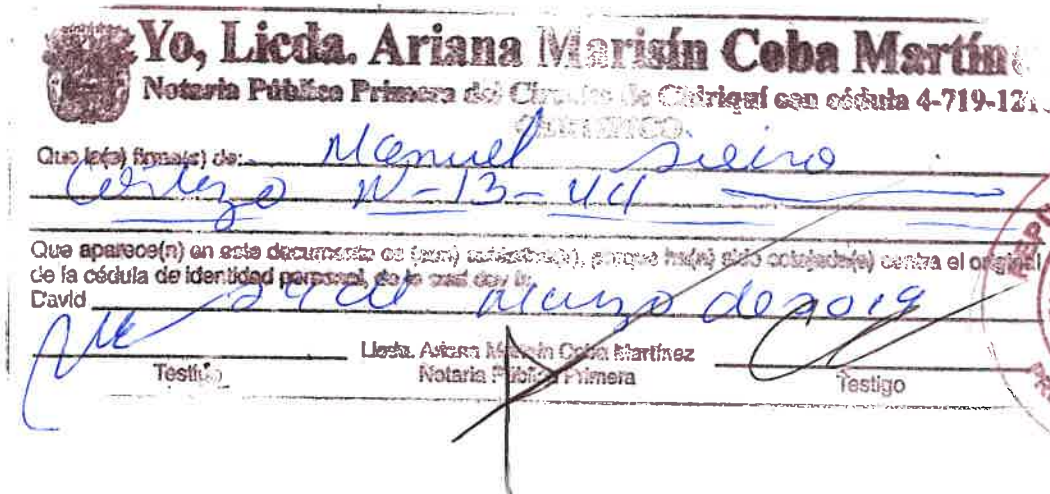 Yo, Licda. Ariana Marisín Coba Martín
Notaria Pública Primera del Circuito de Chiriquí con cédula 4-719-121
CERTIFICO:
Que la(s) firma(s) de: Manuel Sieiro
N-13-44
Que aparece(n) en este documento es (son) auténtica(s), porque ha(n) sido cotejada(s) contra el original
de la cédula de identidad personal, de lo cual doy fe.
David de marzo de 2019
Licda. Ariana Marisín Coba Martínez
Testigo Notaria Pública Primera Testigo